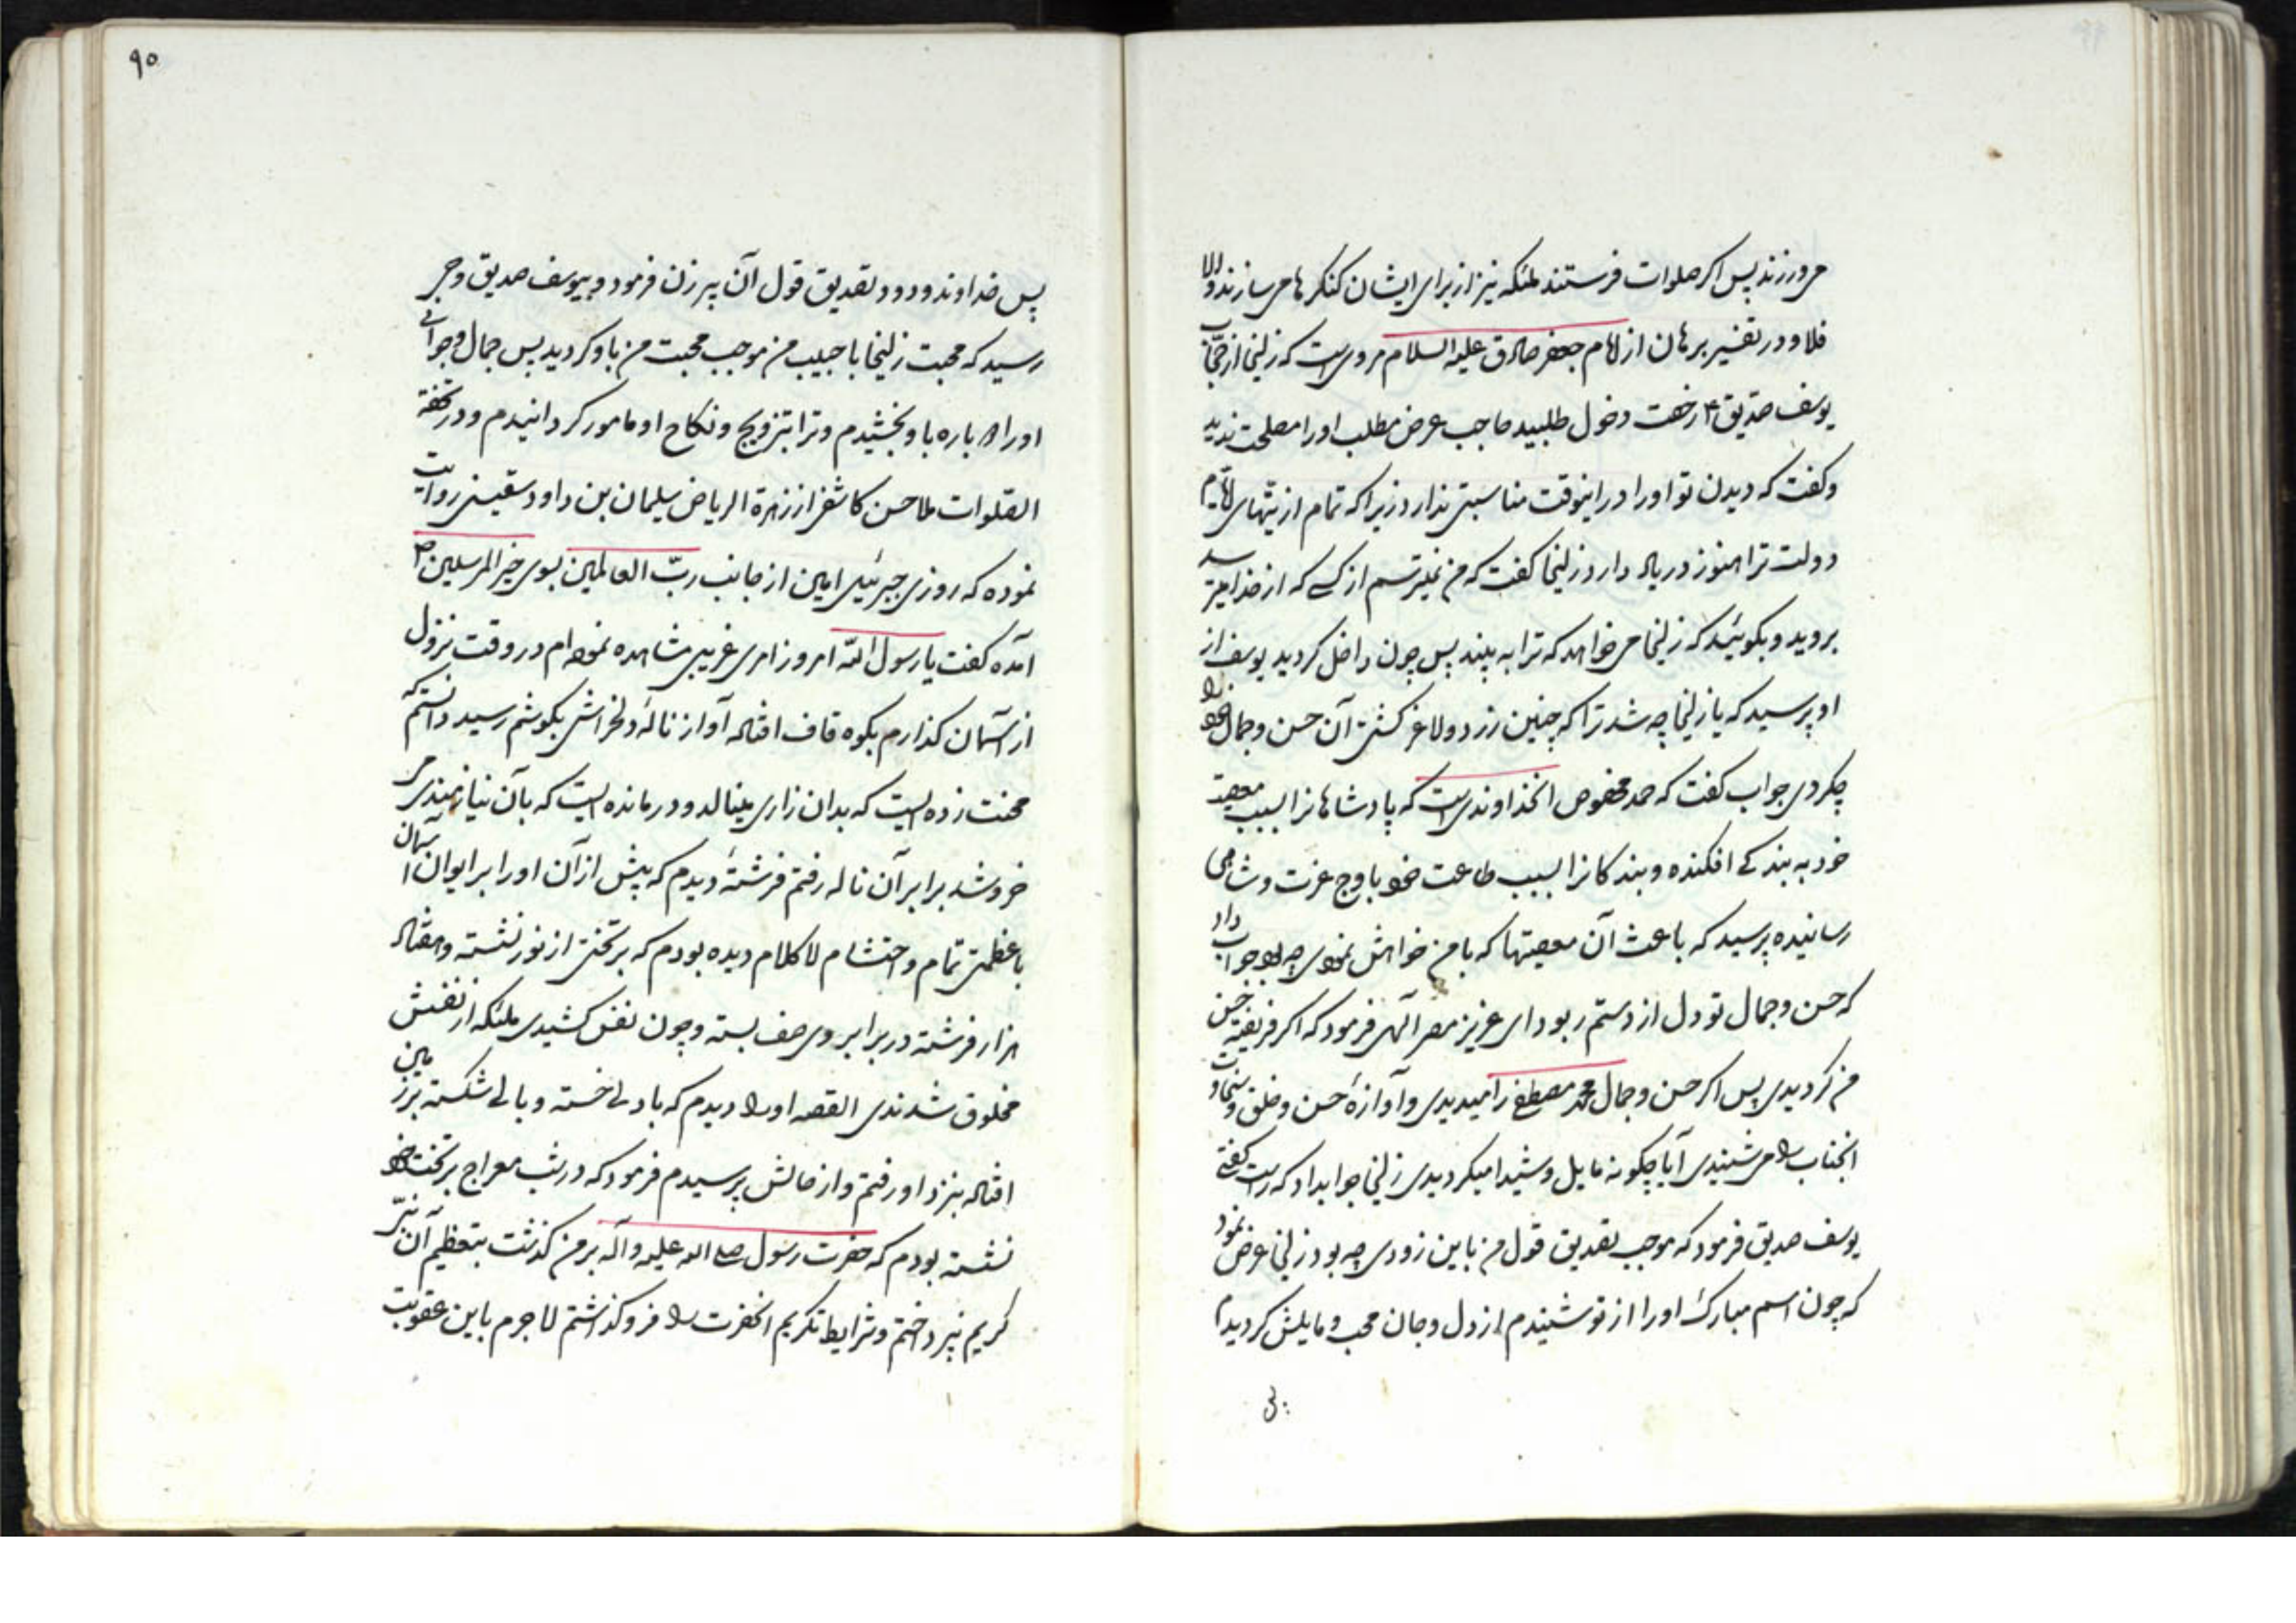 می ورزند پس اکر صلوات فرستند ملئکه نیز از برای ایشان کنکرها می سازند والا
فلا و در تفسیر برهان از امام جعفر صادق علیه السلام مرویست که زلیخا از حجّاب
یوسف صدّیق ع رخصت دخول طلبید حاجب عرض مطلب او را مصلحت ندید
و کفت که دیدن تو او را در اینوقت مناسبتی ندارد زیرا که تمام اذیتهای ایام
دولت ترا هنوز در یاد دارد زلیخا کفت که من نمیترسم از کسی که از خدا میترسد
بروید و بکوئید که زلیخا می خواهد که ترا به بیند پس چون داخل کردید یوسف از
او پرسید که یا زلیخا چه شد ترا که چنین زرد و لاغر کشتی آن حسن و جمال خود را
چکردی جواب کفت که حمد مخصوص انخداوندیست که پادشاهانرا بسبب معصیت
خود به بندکی افکنده و بندکانرا بسبب طاعت خود باوج عزت و شاهی
رسانیده پرسید که باعث آن معصیتها که با من خواهش نمودی چه بود جواب داد
که حسن و جمال تو دل از دستم ربود ای عزیز مصر آلهی فرمود که اکر فریفته حسن
من کردیدی پس اکر حسن و جمال محمد مصطفی را میدیدی و آوازهٔ حسن و خلق و سخاوت
انجناب را می شنیدی آیا چکونه مایل و شیدا میکردیدی زلیخا جوابداد که راست کفتی
یوسف صدیق فرمود که موجب تصدیق قول من باین زودی چه بود زلیخا عرض نمود
که چون اسم مبارک او را از تو شنیدم از دل و جان محب و مایلش کردیدم
۹۰
پس خداوند ودود تصدیق قول آن پیر زن فرمود و بیوسف صدیق وحی
رسید که محبت زلیخا با حبیب من موجب محبت من باو کردید پس جمال و جوانی
او را دوباره باو بخشیدم و ترا بتزویج و نکاح او مامور کردانیدم و در تحفة
الصّلوات ملا حسن کاشفی از زهرة الریاض سلیمان بن داود سقینی روایت
نموده که روزی جبرئیل امین از جانب ربّ العالمین بسوی خیر المرسلین ص
آمده کفت یا رسول الله امروز امری غریبی مشاهده نموده ام در وقت نزول
از آسمان کذارم بکوه قاف افتاد آواز نالهٔ دلخراشی بکوشم رسید دانستم که
محنت زده ایست که بدان زاری مینالد و درمانده ایست که بآن نیازمندی می
خروشد برابر آن ناله رفتم فرشتهٔ دیدم که پیش از آن او را بر ایوان آسمان
با عظمتی تمام و احتشام لا کلام دیده بودم که بر تختی از نور نشسته و هفتاد
هزار فرشته در برابر وی صف بسته و چون نفس کشیدی ملئکه از نفسش
مخلوق شدندی القصه او را دیدم که با دلی خسته و بالی شکسته بر زمین
افتاد بنزد او رفتم و از حالش پرسیدم فرمود که در شب معراج بر تخت خود
نشسته بودم که حضرت رسول صلی الله علیه و آله بر من کذشت بتعظیم آن نبیّ
کریم نپرداختم و شرایط تکریم انحضرت را فرو کذاشتم لا جرم باین عقوبت